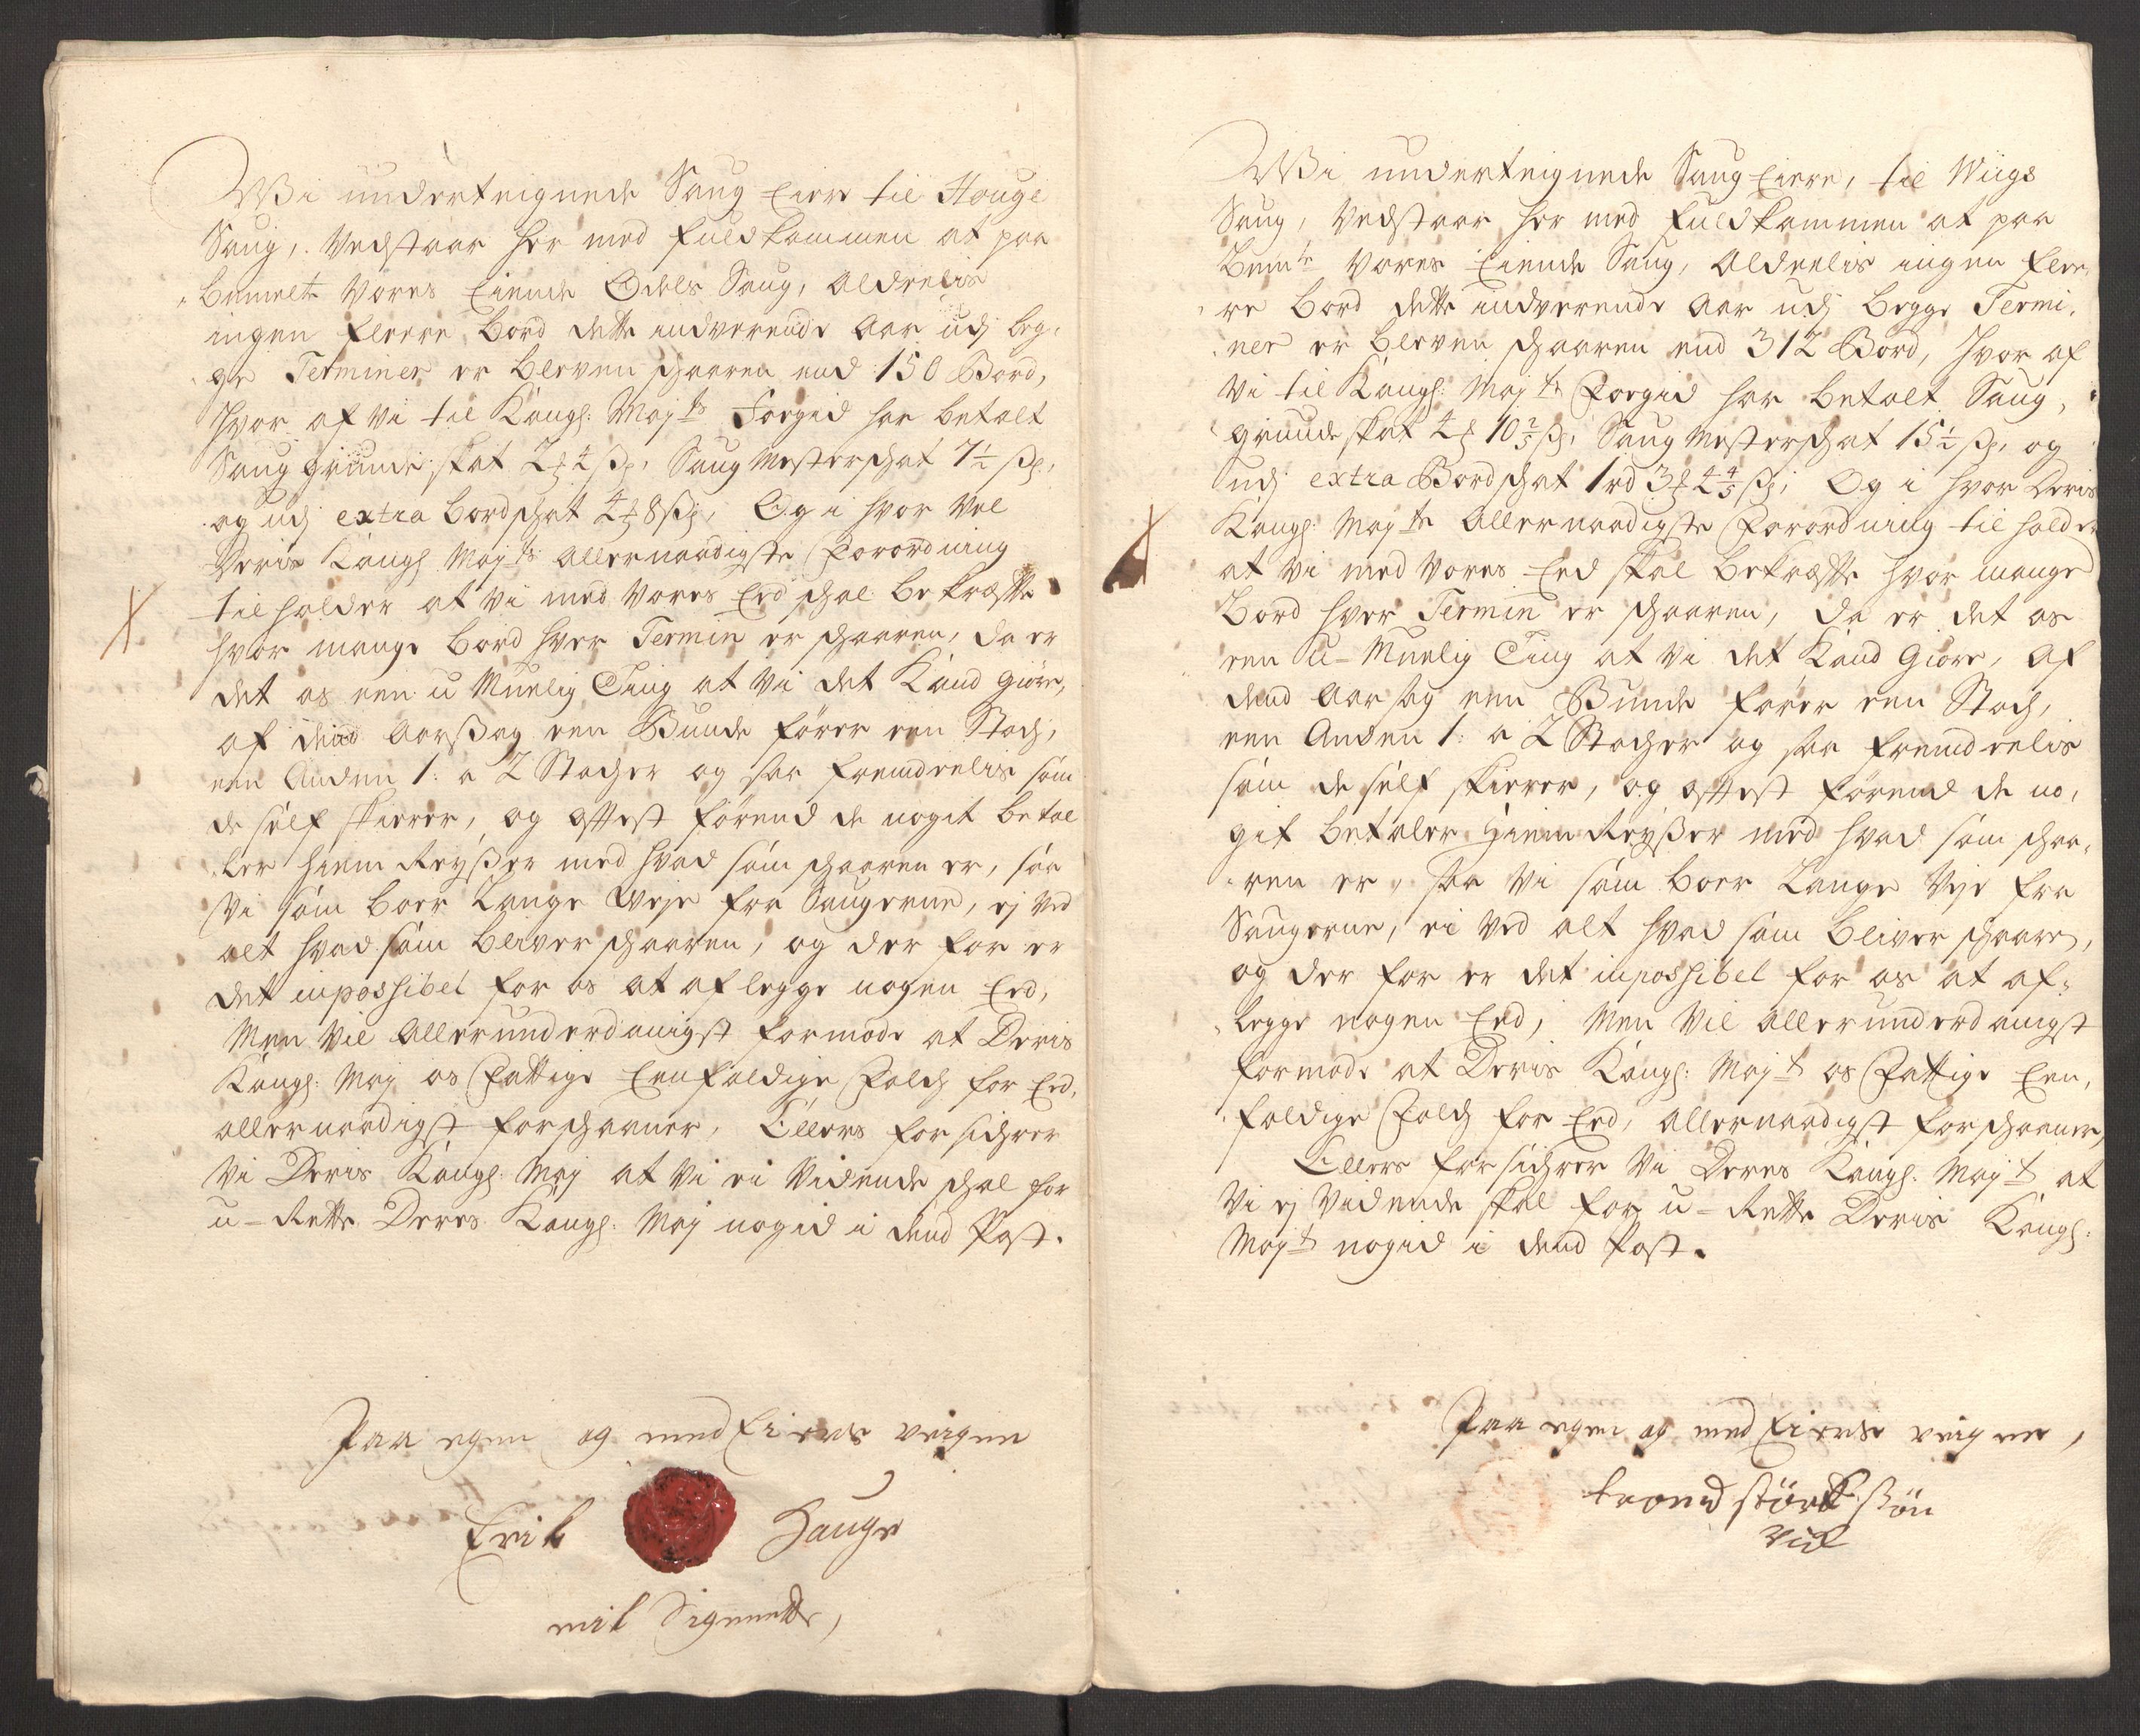 Wi underteignede Saug Eiere til Houge
Saug, Vedstaar her med fuldkommen at paa
bemelte Vores Eiende Odels Saug, Aldeelis
ingen fleere bord dette indverende Aar udj beg-
ge Terminer er bleven schaaren end 150 Bord,
Hvor af Vi til Kongl: Maj:ts Forgid har betalt
Saug grunde skat 2 4 ß, Saug Mesterschat 7½ ß,
og udj extra bordschat 4 8 ß, Og i hvor Vel
Deris Kongl Maj:ts Allernaadigste Forordning
tilholder at Vi med Vores Eed schal bekræfte
hvor mange bord hver Termin er schaaren, da er
det os een u Muelig Ting at Vi det Kand giöre,
af dend Aarßag een Bunde förer een Stoch,
een Anden 1: a 2 Stocher og saa fremdeelis som
de self skierer, og oftest förend de nogit betal
ler hiem Reyßer med hvad som schaaren er, saa
Vi som boer Lange Weje fra Saugerne, ej ved
alt hvad som bliver schaaren, og der for er
det inpossibel for os at aflegge nogen Eed,
Men Vil Allerunderdanigst formode at Deris
Kongl: Maj os Fattige Eenfoldige Folch for Eed,
allernaadigst forschaaner, Ellers forsichrer
Vi Deris Kongl: Maj at Vi ei Vidende schal for
u-Rette Deres Kongl: Maj nogid i dend Post.
Paa egen og med Eiers veigne
Erik Hauge
mit Signette,
Wi underteignede Saug Eiere, til Wiigs
Saug, Vedstaar her med fuldkommen at paa
Bemte Vores Eiende Saug, Aldeelis ingen flee-
re bord dette indverende Aar udj begge Termi-
ner er bleven schaaren end 312 Bord, Hvor af
Vi til Kongl: Maj:ts Forgid har betalt Saug,
grunde skat 4 10 2/5 ß, Saug Mesterschat 15½ ß, og
udj extra Bordschat 1 rd 3 4 4/5 ß, Og i hvor Deris
Kongl: Maj:ts Allernaadigste Forordning tilholder
at Vi med Vores Eed skal bekræfte hvor mange
Bord hver Termin er schaaren, da er det os
een u-Muelig Ting at Vi det Kand Giöre, Af
dend Aarsag een Bunde förer een Stoch,
een Anden 1: a 2 Stocher og saa fremdeelis
som de self skierer, og oftest förend de no-
git betaler Hiem Reyßer med hvad som schaa-
ren er, saa Vi som boer Lange Veje fra
Saugerne, ei ved alt hvad som bliver schaaren,
og der for er det inpossibel for os at af-
legge nogen Eed, Men Vil Allerunderdanigst
formode at Deris Kongl: Maj:t os Fattige Een-
foldige Folch for Eed, allernaadigst forschaaner,
Ellers forsichrer Vi Deres Kongl: Maj:t at
Vi ej Vidende skal for u-Rette Deris Kongl:
Maj:t nogid i dend Post.
Paa egen og med Eierse veigne,
trond störckßön
Vik